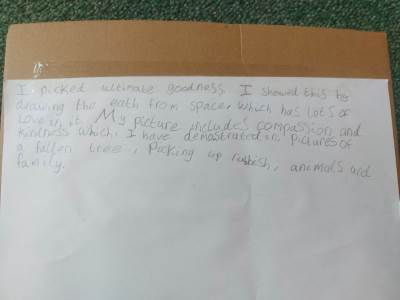 I picked ultimate goodness. I showed this by
drawing the eath from space, which has lots of
love in it. My picture includes compassion and
kindness which, I have demostrated in pictures of
a fallen tree, Picking up rubbish, animals and
family.